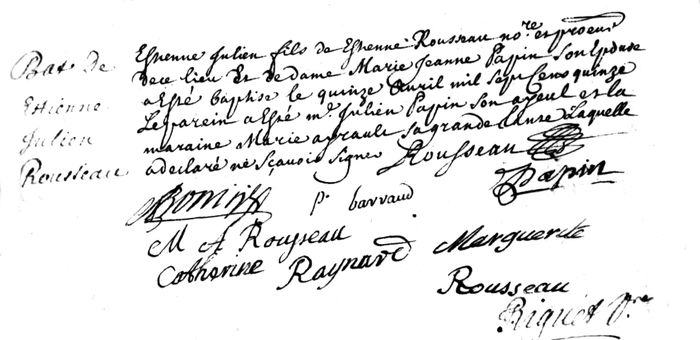 Bat. de
Estienne
Julien
Rousseau
Estienne Julien fils de Estienne Rousseau no.re et procur
de ce lieu Et de dame Marie Jeanne Papin Son Epouse
a Esté baptise le quinze Avril mil sept Cens quinze
Le parein a Esté m.e Julien Papin son ayeul et la
maraine Marie Arrault sa grande tante Laquelle
a declaré ne sçavoir signer Rousseau
Papin
P. barraud
M A Rousseau
Catherine Raynard Marguerite
Rousseau
Riguet V.re